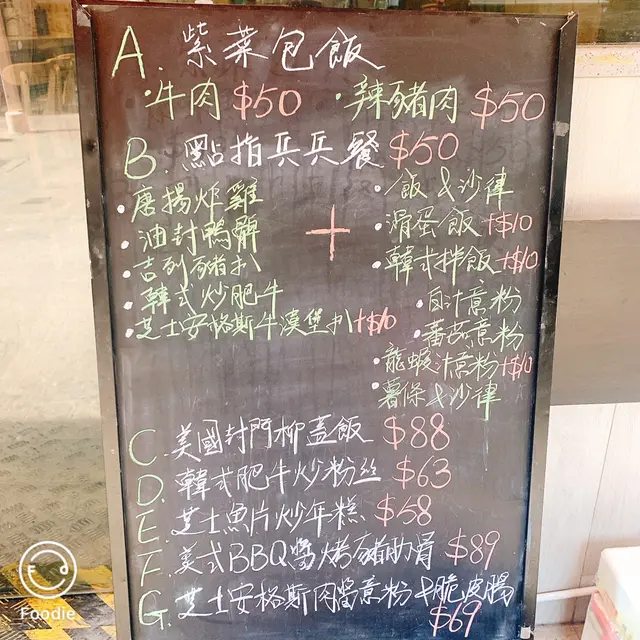 A. 紫菜包飯
·牛肉 $50 ·辣豬肉 $50
B. 點指兵兵餐 $50
·唐揚炸雞
·油封鴨髀
·吉列豬扒
·韓式炒肥牛
·芝士安格斯牛漢堡扒+$10
+
·飯 & 沙律
·滑蛋飯 +$10
·韓式拌飯 +$10
·白汁意粉
·蕃茄意粉
·龍蝦汁意粉+$10
·薯條 & 沙律
C. 美國封門柳蓋飯 $88
D. 韓式肥牛炒粉丝 $63
E. 芝士魚片炒年糕 $58
F. 美式BBQ醬烤豬肋骨 $89
G. 芝士安格斯肉醬意粉+脆皮腸
$69
Foodie